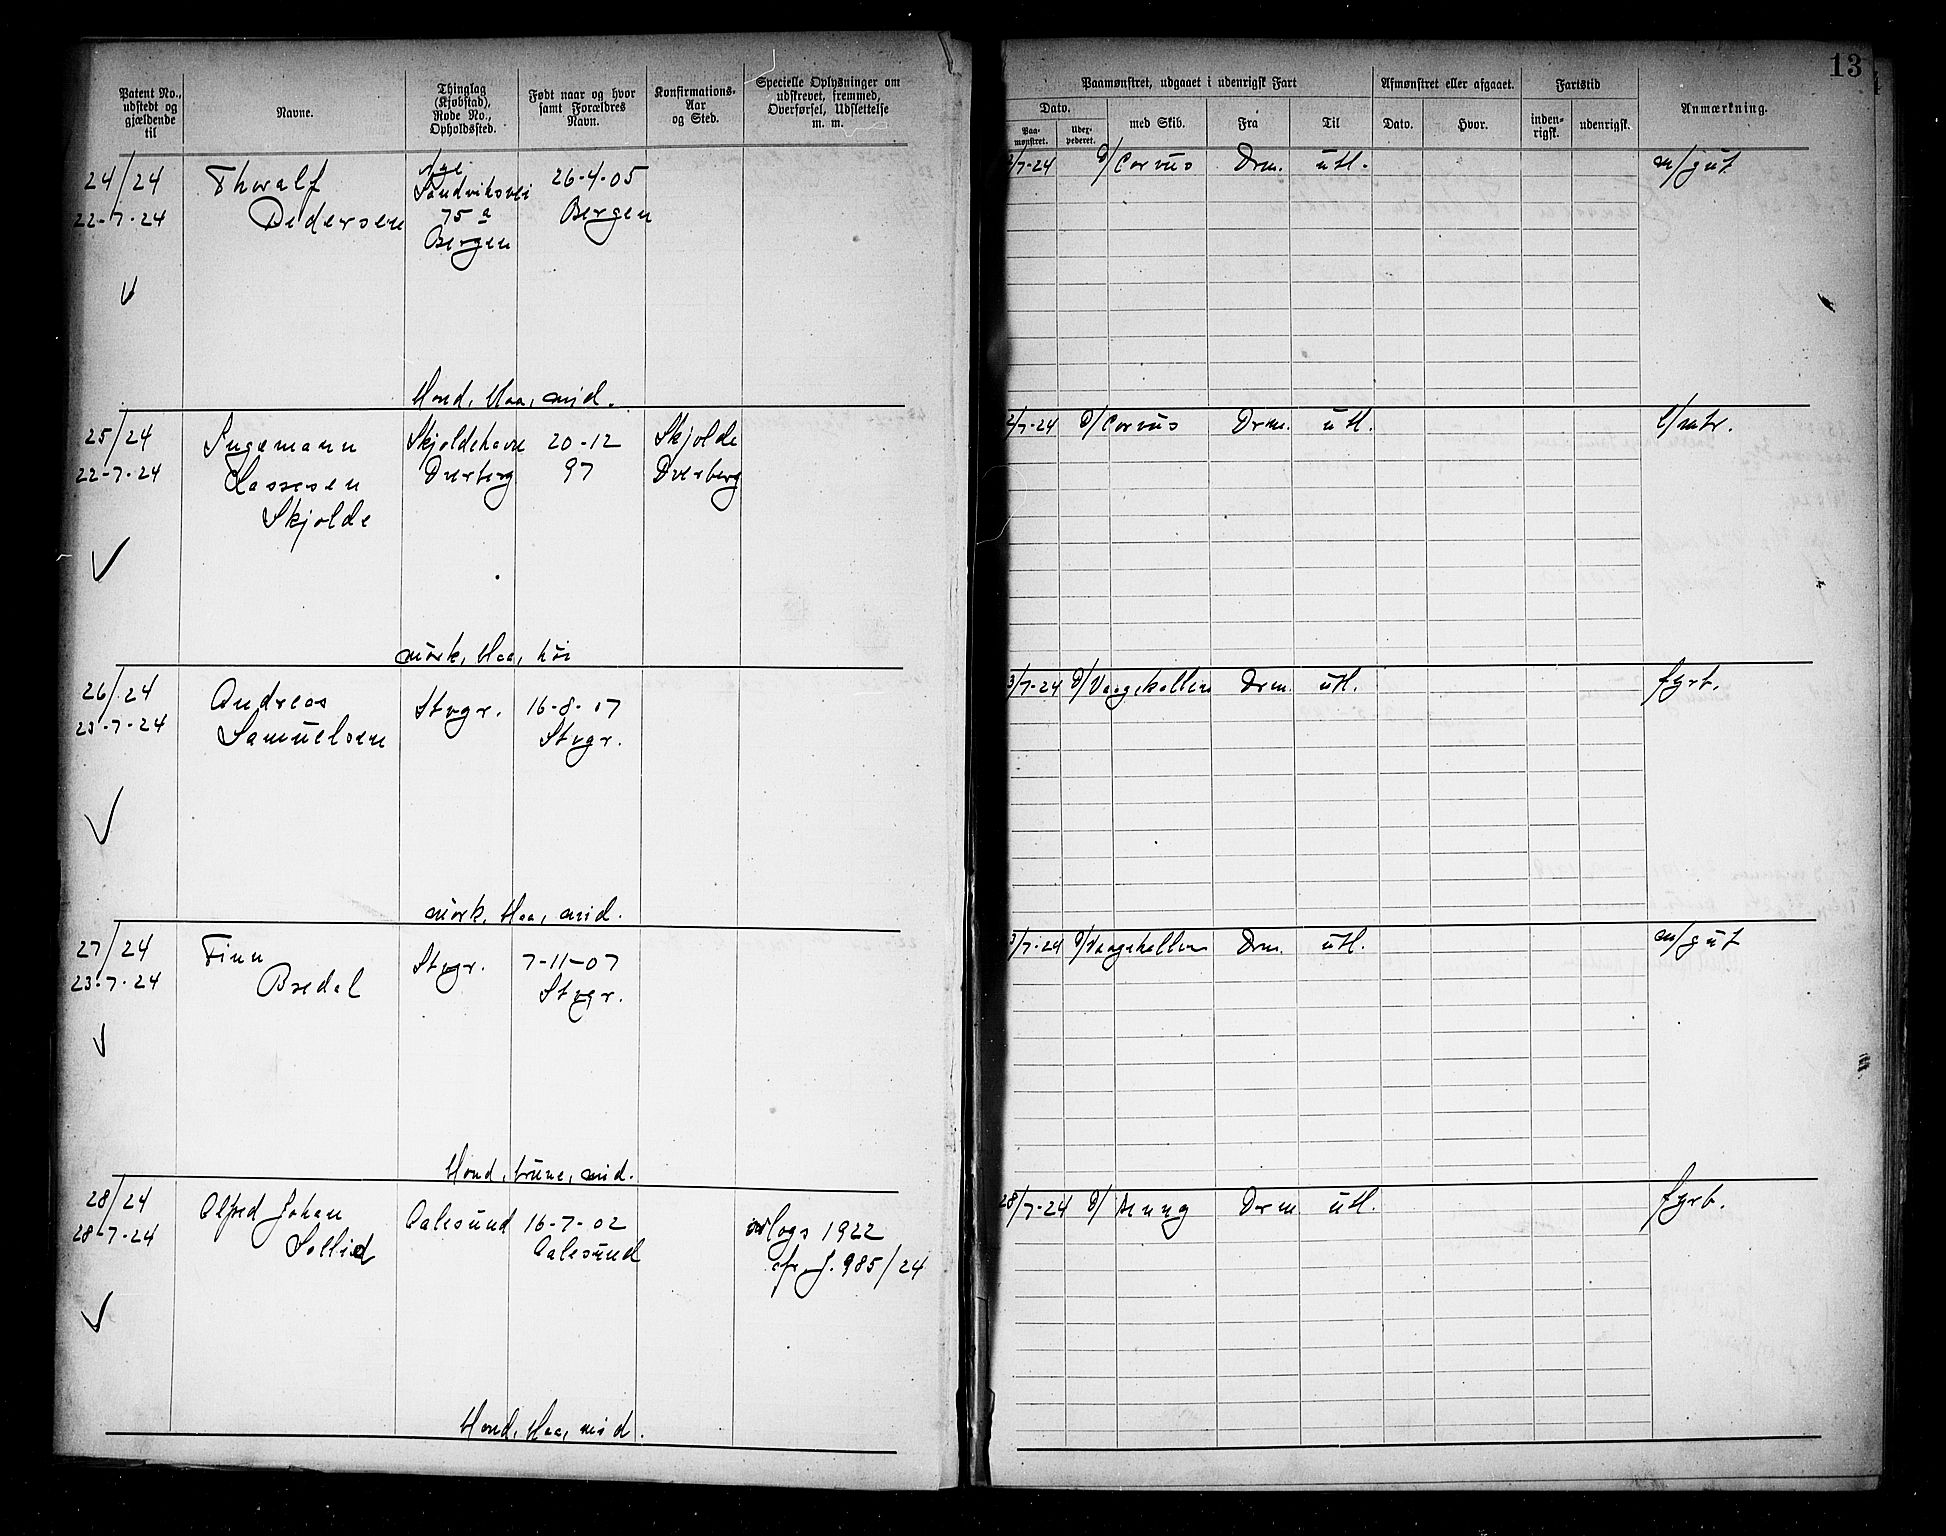 13
Patent No., udstedt og gjældende til
Navne.
Thinglag (Kjøbstad), Rode No., Opholdssted.
Født naar og hvor samt Forældres Navn.
Konfirmations-Aar og Sted.
Specielle Oplysninger om udskrevet, fremmed, Overførsel, Udslettelse m. m.
Paamønstret, udgaaet i udenrigsk Fart
Dato.
Paa-mønstret.
med Skib.
Fra
Til
Afmønstret eller afgaaet.
Dato.
Hvor.
Fartstid
inden-rigsk.
udenrigsk.
Anmærkning.
24/24
22-7-24
Thoralf
Pedersen
Nye
Sandviksvei
75 a
Bergen
26-4-05
Bergen
/7-24 D/ Corvus Drm. utl.
m/gut
blond, blaa, mid.
25/24
22-7-24
Ingemann
Lassesen
Skjolde
Skjoldehavn
Dverberg
20-12
97
Skjolde
Dverberg
/7-24 D/ Corvus Drm. utl.
l/matr.
mörk, blaa, höi
26/24
23-7-24
Andreas
Samuelsen
Stvgr.
16-8-07
Stvgr.
3/7-24 D/ Vaagekallen Drm. utl.
fyrb.
mörk, blaa, mid.
27/24
23-7-24
Finn
Bredal
Stvgr.
7-11-07
Stvgr.
3/7-24 D/ Vaagekallen Drm. utl.
m/gut
blond, brune, mid.
28/24
28-7-24
Alfred Johan
Sollid
Aalesund
16-7-02
Aalesund
orlogs 1922
cfr J. 985/24
28/7-24 D/ Drm utl.
fyrb.
blond, blaa, mid.